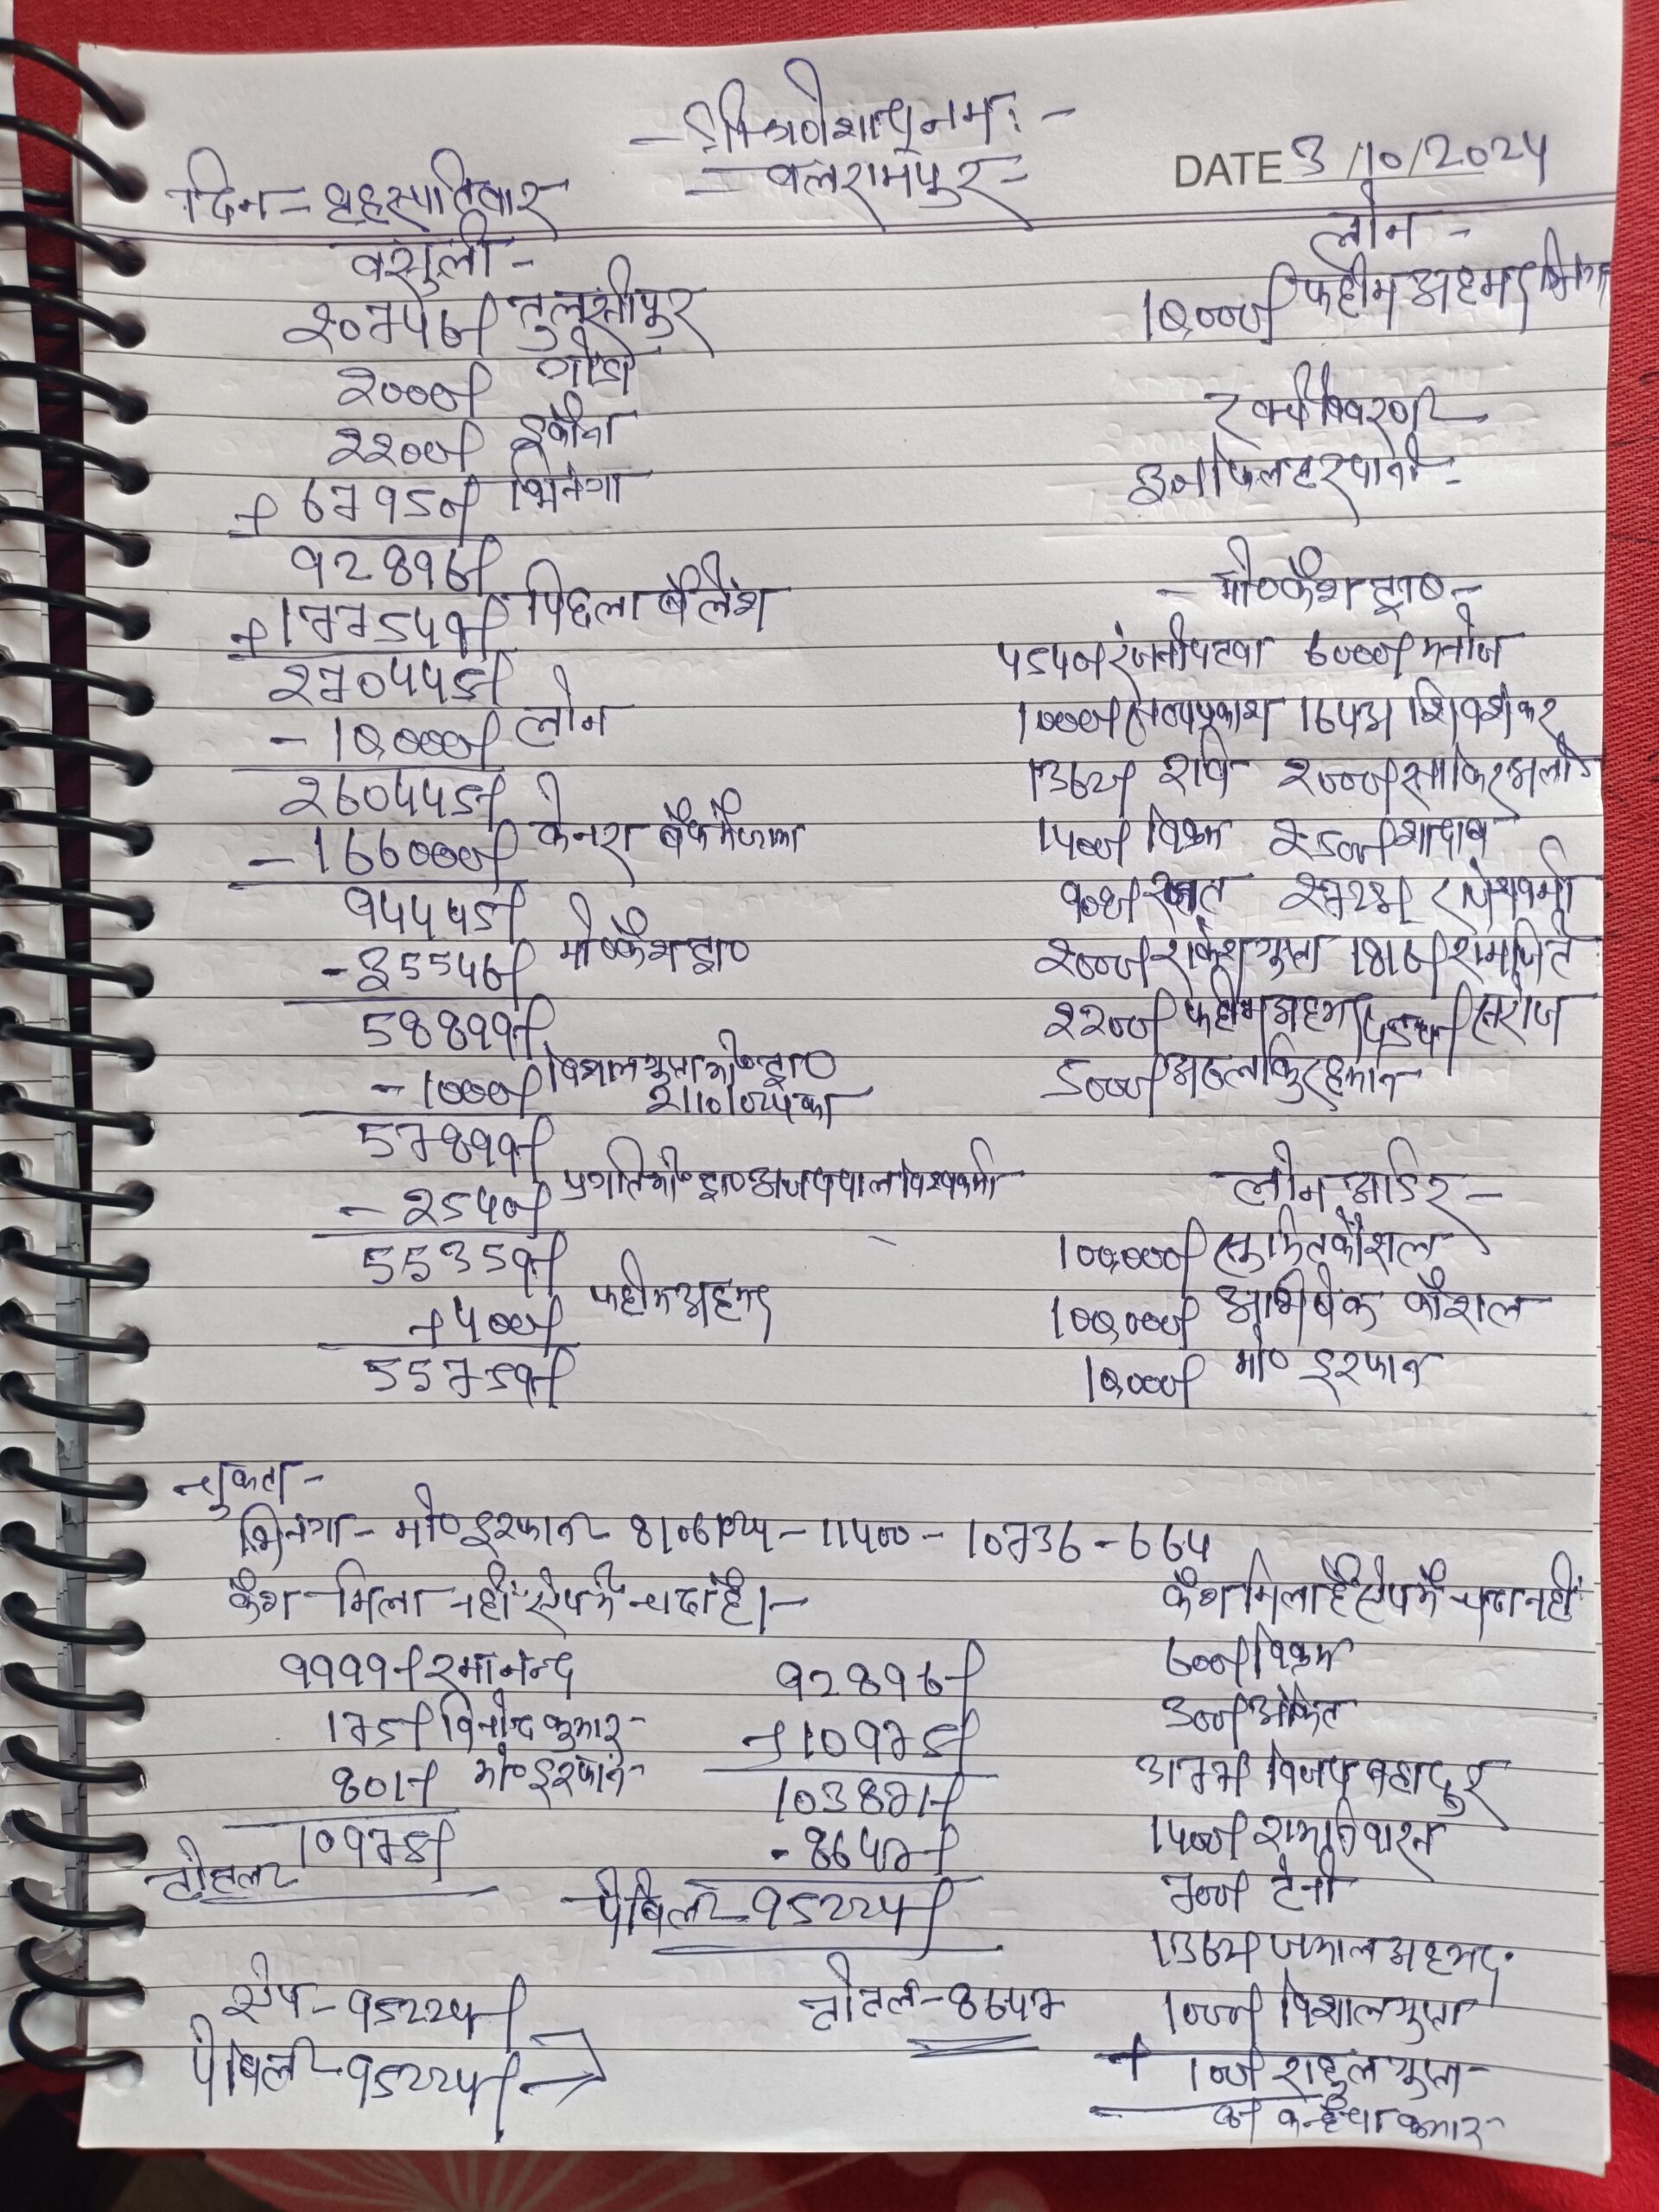 श्री गणेशाय नमः
बलरामपुर
DATE 3/10/2024
दिन - बृहस्पतिवार
वसुली -
20756/ तुलसीपुर
2000/ गोंडा
2200/ इकौना
+ 67950/ भिनगा
92896/
+177549/ पिछला बैलेंश
270445/
- 10,000/ लोन
260445/
- 166000/ केनरा बैंक में जमा
94445/
- 35546/ मो० कैश द्वा०
58899/
- 1000/ विशाल गुप्ता मो० द्वा०
2/10/024 का
57899/
- 2540/ प्रगति मो० द्वा० अजयपाल विश्वकर्मा
55359/
+ 400/ फहीम अहमद
55759/
लोन -
10,000/ फहीम अहमद भिनगा
खर्च विवरण
मो० कैश द्वा० -
4540/ रंजनी पटवा 6000/ मनोज
1000/ सत्यप्रकाश शिवशंकर
1362/ रवि 2000/ साकिर अली
1400/ विक्रम 2500/ शादाब
रमेश वर्मा
2000/ राकेश गुप्ता 1816/ रामजीत
2200/ फहीम अहमद सरोज
5000/
लोन आर्डर -
100,000/ सुमित कौशल
100,000/ अभिषेक कौशल
10,000/ मो० इरफान
चुकता -
भिनगा - मो० इरफान - 8/06/024 - 11400 - 10736 - 664
कैश मिला नहीं ऐप में चढ़ा है।-
9999/ रमानन्द
175/ विनोद कुमार
801/ मो० इरफान
टोटल 10975/
92896/
+ 10975/
103871/
- 8647/
पेबिल - 95224/
टोटल - 8647
ऐप - 95224/
पेबिल - 95224/
कैश मिला है ऐप में चढ़ा नहीं
600/ विक्रम
300/ अंकित
3177/ विजय बहादुर
1400/ रामनिवारन
700/ टेनी
1362/ जमाल अहमद
1000/ विशाल गुप्ता
+ 100/ राहुल गुप्ता
8/ कन्हैया कुमार